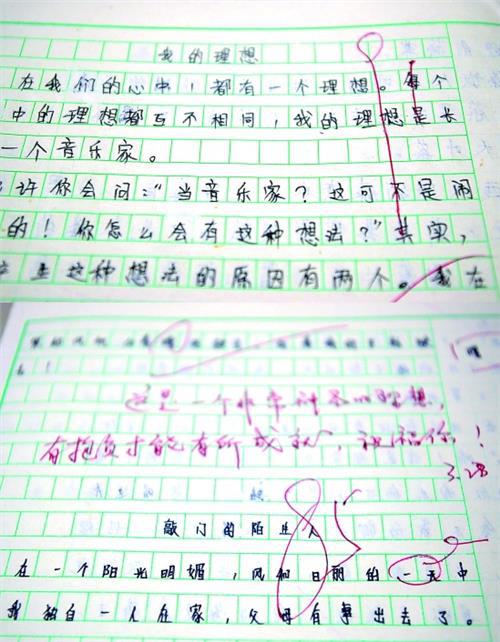 我的理想
在我们的心中，都有一个理想。每个
中的理想都互不相同，我的理想是长
一个音乐家。
许你会问：“当音乐家？这可不是闹
的！你怎么会有这种想法？”其实，
生这种想法的原因有两个。我在
这是一个非常的理想，
有抱负才能有所成就，祝福你！
3.28
敲门的陌生人
85
在一个阳光明媚，风和日丽的一天中
我独自一人在家，父母有事出去了。